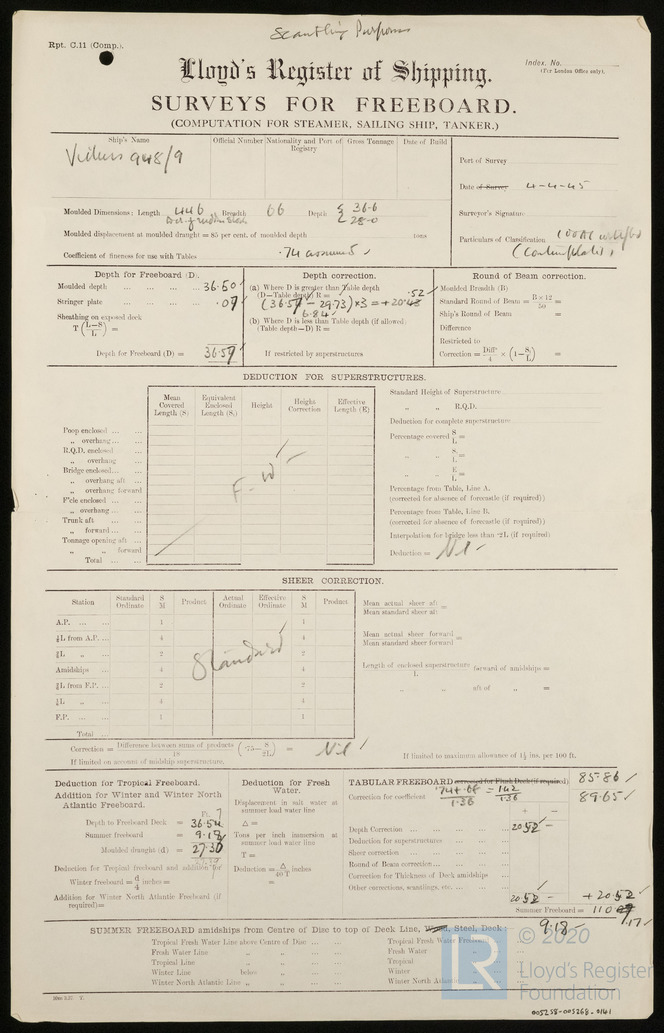 Scantling Purposes
Rpt. C.11 (Comp.).
Lloyd's Register of Shipping.
Index. No.
(For London Office only).
SURVEYS FOR FREEBOARD.
(COMPUTATION FOR STEAMER, SAILING SHIP, TANKER.)
Ship's Name Official Number Nationality and Port of Registry Gross Tonnage Date of Build
Vickers 948/9
Port of Survey
Date of Survey 4-4-45
Surveyor's Signature
Particulars of Classification 100A1
(Contemplated)
Moulded Dimensions: Length 446 Breadth 66 Depth { 36-6
28-0
Moulded displacement at moulded draught = 85 per cent. of moulded depth tons
Coefficient of fineness for use with Tables .74 assumed
Depth for Freeboard (D).
Moulded depth ... ... ... 36.50
Stringer plate ... ... ... .07
Sheathing on exposed deck
T (L-S/L) =
Depth for Freeboard (D) = 36.57
Depth correction.
(a) Where D is greater than Table depth
(D—Table depth) R = .52
(36.57 - 29.73) × 3 = +20.48
6.84
(b) Where D is less than Table depth (if allowed)
(Table depth—D) R =
If restricted by superstructures
Round of Beam correction.
Moulded Breadth (B)
Standard Round of Beam = B×12/50 =
Ship's Round of Beam =
Difference
Restricted to
Correction = Diffce/4 × (1 - S1/L) =
DEDUCTION FOR SUPERSTRUCTURES.
Mean Covered Length (S) Equivalent Enclosed Length (S1) Height Height Correction Effective Length (E)
Poop enclosed ... ...
„ overhang ... ...
R.Q.D. enclosed
„ overhang
Bridge enclosed... ...
„ overhang aft ...
„ overhang forward
F'cle enclosed ... ...
„ overhang ... ...
Trunk aft ... ...
„ forward ... ...
Tonnage opening aft ...
„ „ forward
Total ... ...
F.W.
Standard Height of Superstructure
„ „ R.Q.D.
Deduction for complete superstructure
Percentage covered S/L =
„ S1/L =
„ E/L =
Percentage from Table, Line A.
(corrected for absence of forecastle (if required))
Percentage from Table, Line B.
(corrected for absence of forecastle (if required))
Interpolation for bridge less than ·2L (if required)
Deduction = Nil -
SHEER CORRECTION.
Station Standard Ordinate S M Product Actual Ordinate Effective Ordinate S M Product
A.P. ... ... 1 1
⅙L from A.P. ... 4 4
⅓L „ ... 2 2
Amidships ... 4 4
⅓L from F.P. ... 2 2
⅙L „ ... 4 4
F.P. ... ... 1 1
Total ...
Standard
Mean actual sheer aft
Mean standard sheer aft =
Mean actual sheer forward
Mean standard sheer forward =
Length of enclosed superstructure/L forward of amidships =
„ „ aft of „ =
Correction = Difference between sums of products/18 (·75 - S/2L) = Nil
If limited on account of midship superstructure.
If limited to maximum allowance of 1½ ins. per 100 ft.
Deduction for Tropical Freeboard.
Addition for Winter and Winter North Atlantic Freeboard.
Ft.
Depth to Freeboard Deck = 36.57
Summer freeboard = 9.18
Moulded draught (d) = 27.39
27.39
Deduction for Tropical freeboard and addition for
Winter freeboard = d/4 inches =
Addition for Winter North Atlantic Freeboard (if required)=
Deduction for Fresh Water.
Displacement in salt water at summer load water line
Δ =
Tons per inch immersion at summer load water line
T =
Deduction = Δ/40 T inches
=
TABULAR FREEBOARD corrected for Flush Deck (if required) 85.86
Correction for coefficient .74+.68/1.36 = 1.42/1.36 89.65
+ -
Depth Correction ... ... ... ... ... 20.52 -
Deduction for superstructures ... ... ...
Sheer correction ... ... ... ... ...
Round of Beam correction... ... ... ...
Correction for Thickness of Deck amidships
Other corrections, scantlings, etc. ... ... ...
20.52 - + 20.52
Summer Freeboard = 110.17
9.18 -
SUMMER FREEBOARD amidships from Centre of Disc to top of Deck Line, Wood, Steel, Deck:
Tropical Fresh Water Line above Centre of Disc ... ...
Fresh Water Line „ „ ... ...
Tropical Line „ „ ... ...
Winter Line below „ ... ...
Winter North Atlantic Line „ „ ... ...
Tropical Fresh Water Freeboard
Fresh Water „
Tropical „
Winter „
Winter North Atlantic „
LR © 2020
Lloyd's Register
Foundation
005258-005268-0141